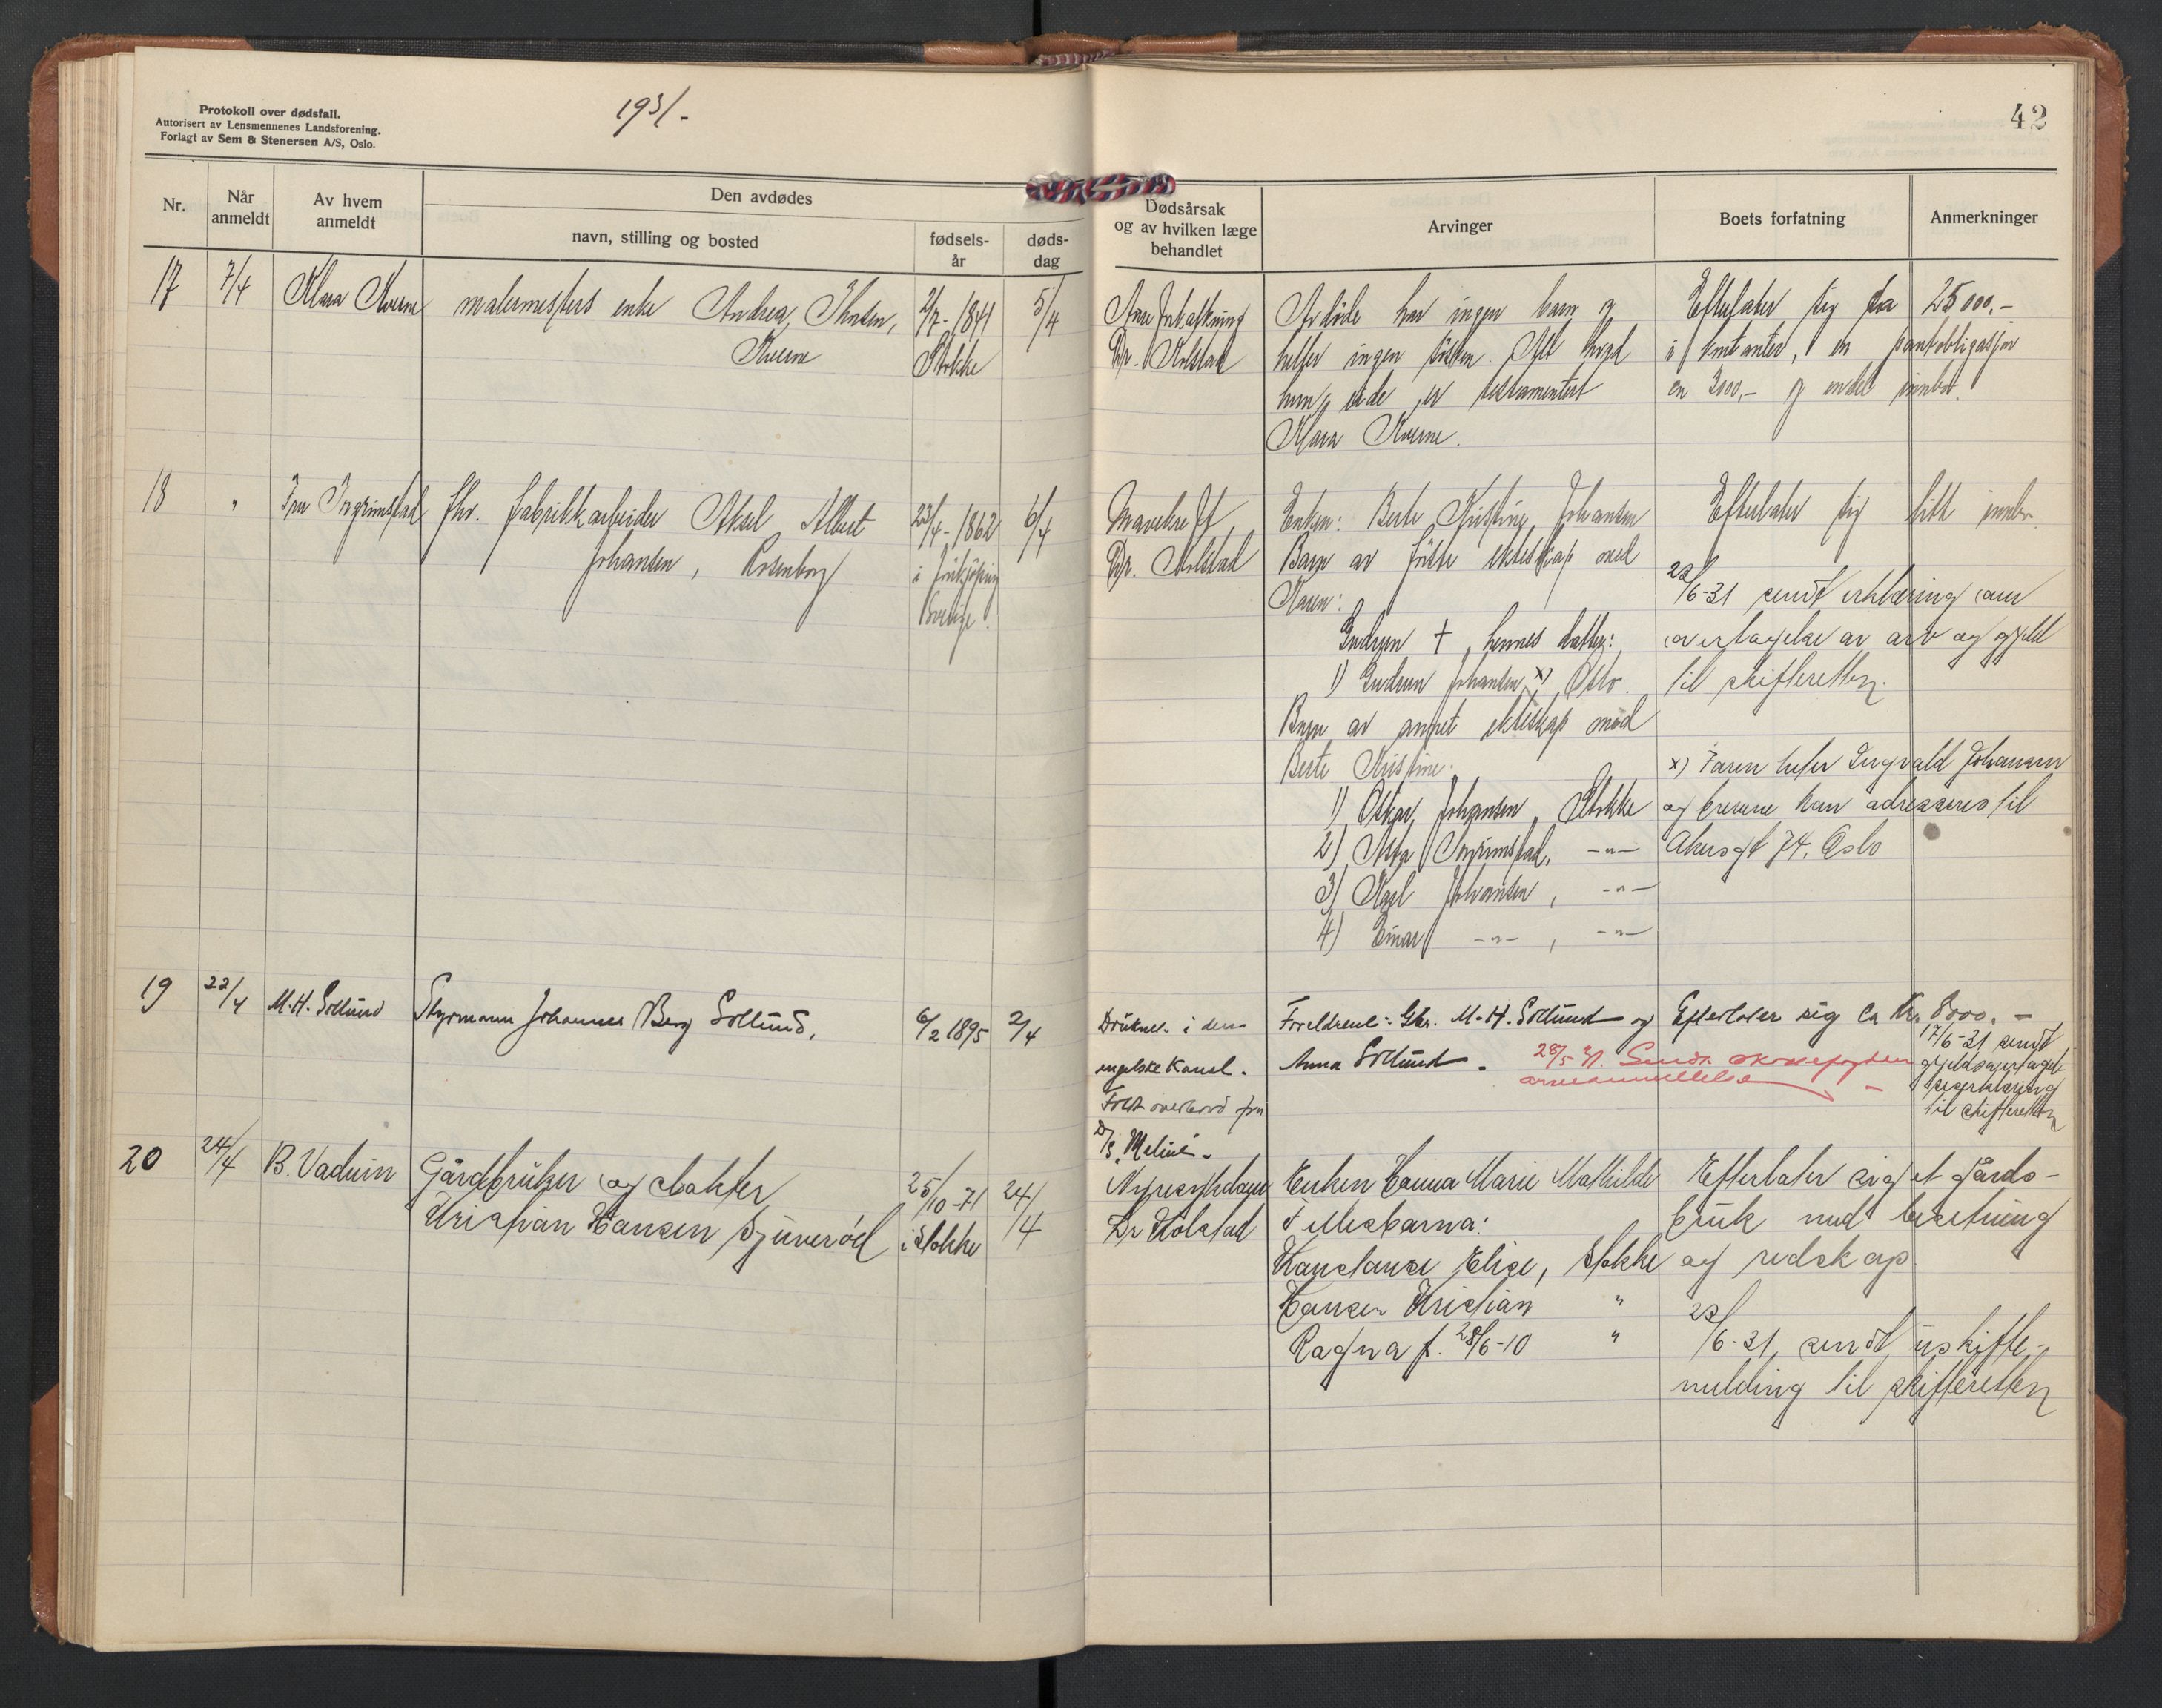 Protokoll over dødsfall.
Autorisert av Lensmennenes Landsforening.
Forlagt av Sem & Stenersen A/S, Oslo.
1931-
42
Nr.
Når
anmeldt
Av hvem
anmeldt
Den avdødes
navn, stilling og bosted
fødsels-
år
døds-
dag
Dødsårsak
og av hvilken læge
behandlet
Arvinger
Boets forfatning
Anmerkninger
17
7/4
Klara Kverne
malermesters enke Andrea
Kverne
2/7-1841
Stokke
5/4
Dr. Holstad
Avdøde har ingen barn og
heller ingen søsken. Alt hvad
hun eide er testamentert
Klara Kverne.
Efterlater sig ca 25000,-
i kontanter, en pantobligasjon
en 3000,- og endel innbo.
18
"
Fru Ingrimstad
fhv. fabrikkarbeider Aksel Albert
Johansen, Rosenborg
23/4-1862
i Jönköping
Sverige.
6/4
Mavekreft,
Dr. Holstad
Enken: Berte Kristine Johansen
Barn av første ekteskap med
Karen:
Gudrun †, hennes datter:
1) Gudrun Johansen x) Oslo.
Barn av annet ekteskap med
Berte Kristine.
1) Oskar Johansen, Stokke
2) Asta Ingrimstad, -"-
3) Karl Johansen, -"-
4) Einar -"-, -"-
Efterlater sig litt innbo.
22/6-31 sendt erklæring om
overtagelse av arv og gjeld
til skifteretten.
x) Faren heter Ingvald Johansen
og brevene kan adresseres til
Akersgt 74, Oslo
19
22/4
M.H. Sollund
Styrmann Johannes Berg Sollund.
6/2 1895
2/4
Druknet i den
engelske Kanal.
Falt overbord fra
D/S "Meline".
Foreldrene: Gbr. M.H. Sollund og
Anna Sollund.
28/5
Efterlater sig ca Kr. 8000.-
17/6-31 sendt
til skifteretten
20
24/4
B. Vaduin
Gårdbruker og slakter
Kristian Hansen Djuverød
25/10-71
i Stokke
24/4
Nyresykdom
Dr Holstad
Enken Hanna Marie Mathilde
Fellesbarna:
Konstanse Elise, Stokke
Hansen Kristian "
Ragna f. 28/6-10 "
Efterlater sig et gårds-
bruk med besetning
og redskap
22/6-31, sendt uskifte-
melding til skifteretten